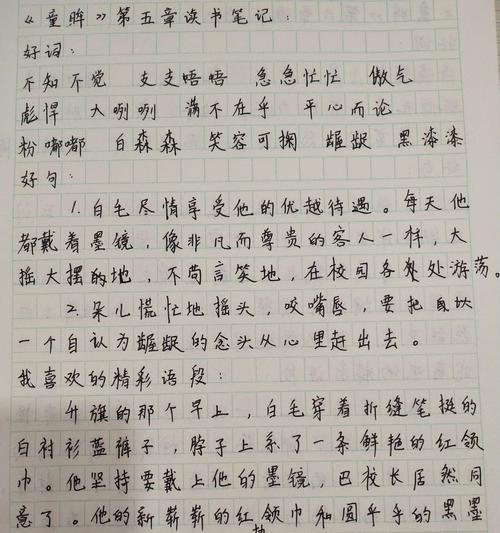 《童眸》第五章读书笔记：
好词：
不知不觉 支支唔唔 急急忙忙 傲气
彪悍 大咧咧 满不在乎 平心而论
粉嘟嘟 白森森 笑容可掬 龌龊 黑漆漆
好句：
1.白毛尽情享受他的优越待遇。每天他
都戴着墨镜，像非凡而尊贵的客人一样，大
摇大摆的地，不苟言笑地，在校园各处处游荡。
2.朵儿慌忙地摇头，咬嘴唇，要把自以
一个自认为龌龊的念头从心里赶出去。
我喜欢的精彩语段：
升旗的那个早上，白毛穿着折缝笔挺的
白衬衫蓝裤子，脖子上系了一条鲜艳的红领
巾。他坚持要戴上他的墨镜，巴校长居然同
意了。他的新崭崭的红领巾和圆乎乎的黑墨